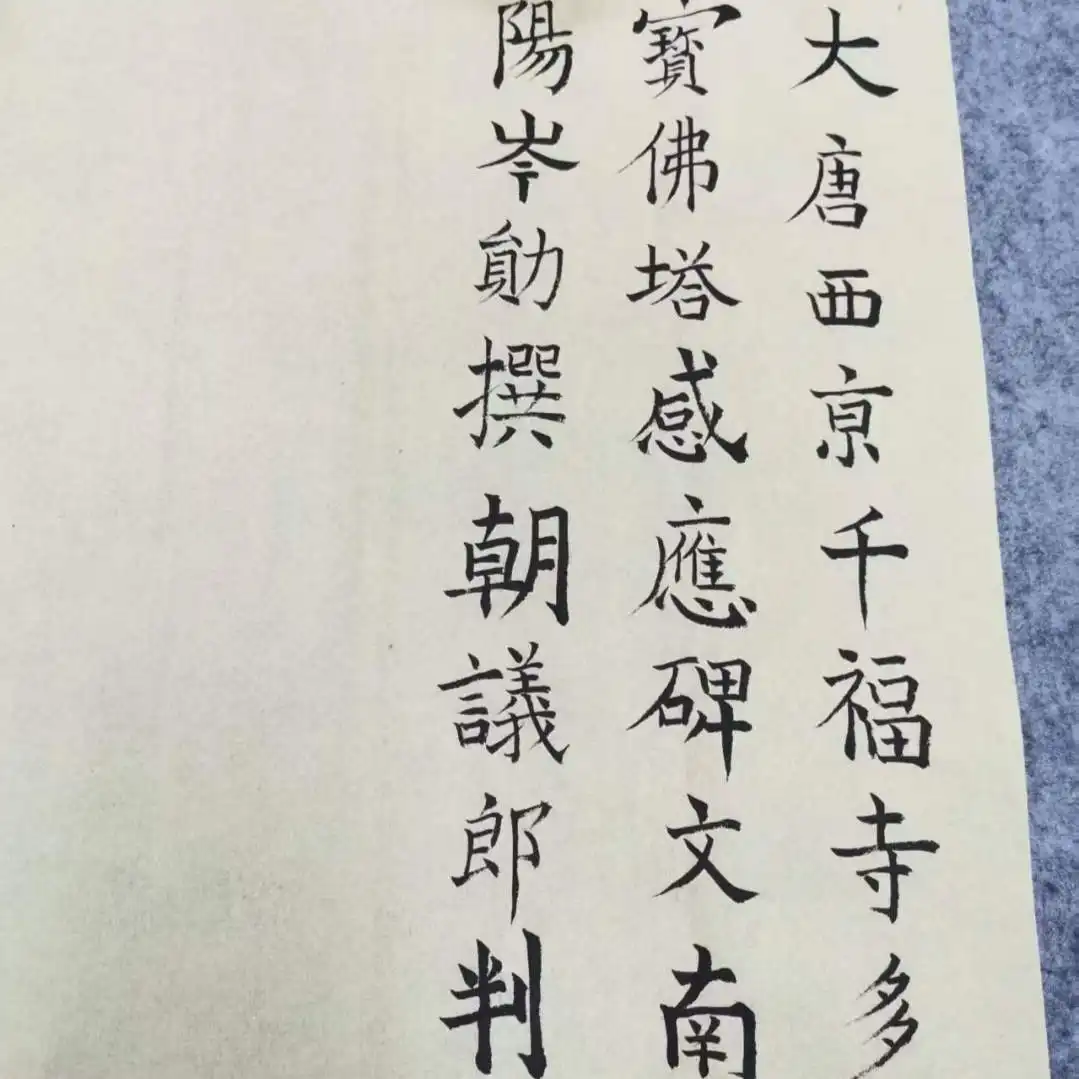 大唐西京千福寺多
寶佛塔感應碑文南
陽岑勛撰朝議郎判